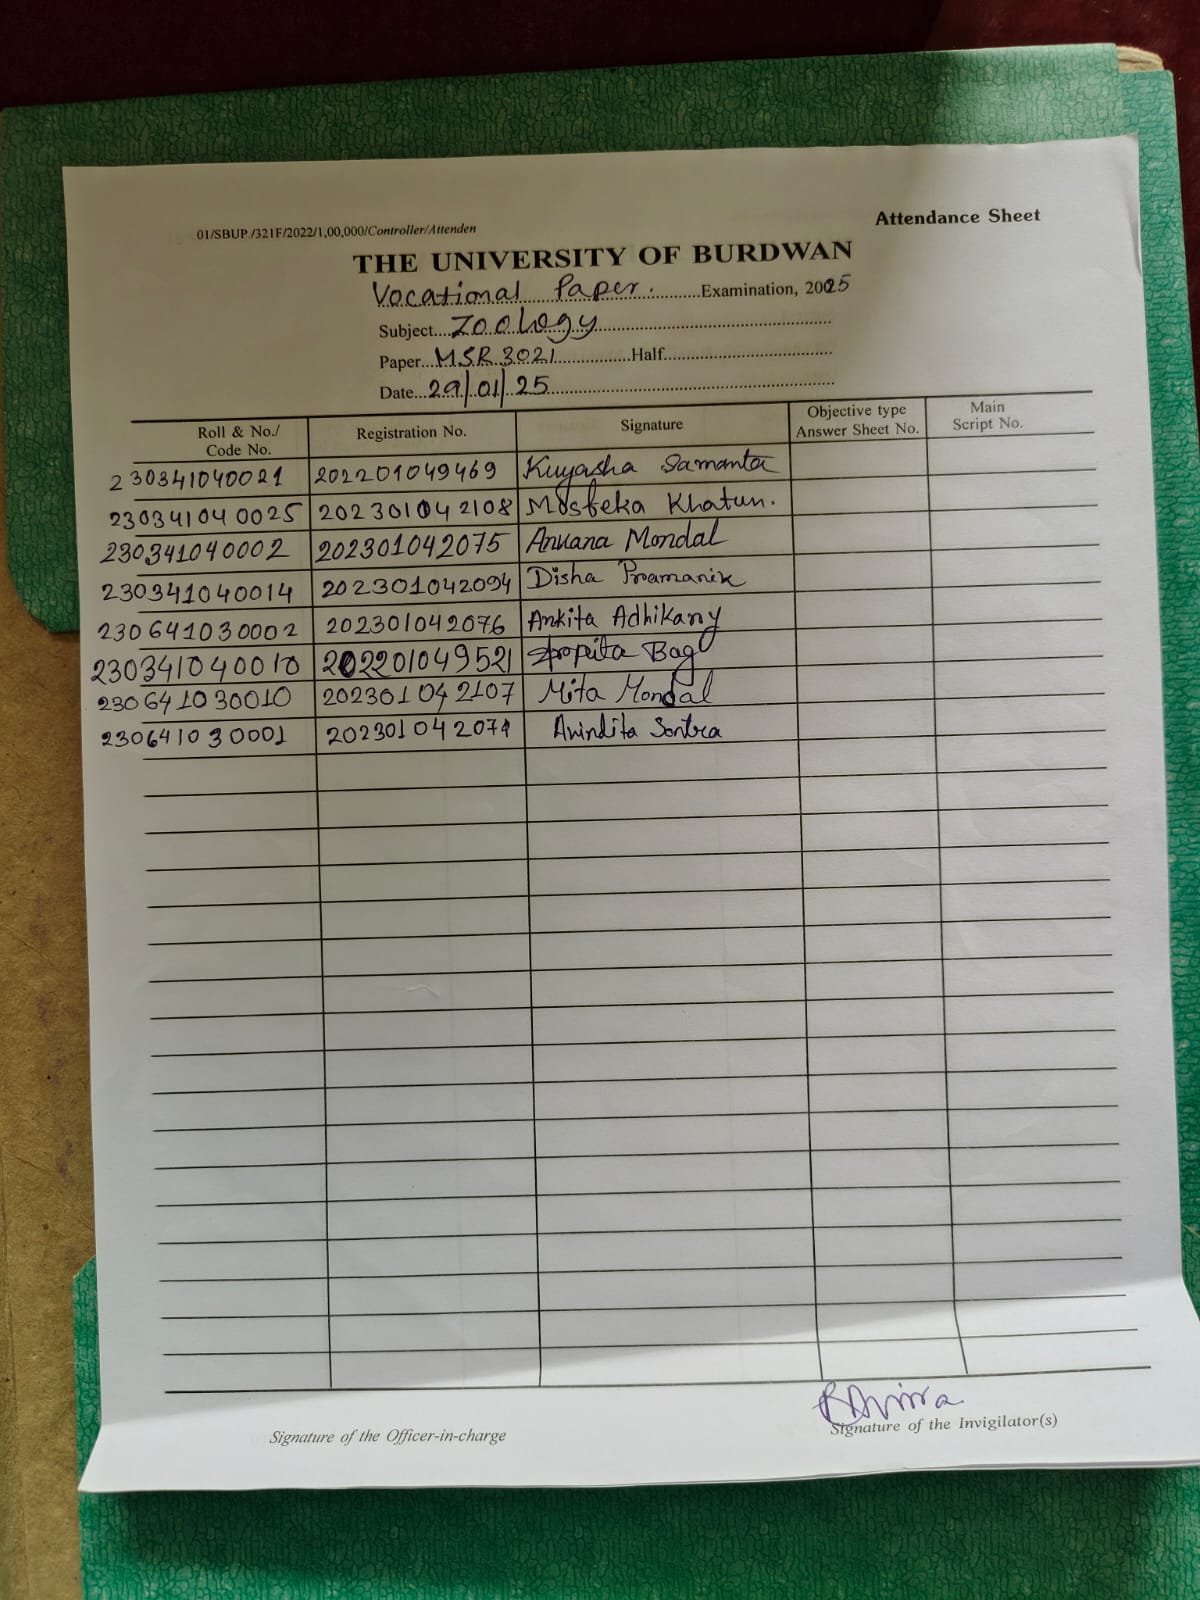 Attendance Sheet
01/SBUP./321F/2022/1,00,000/Controller/Attenden
THE UNIVERSITY OF BURDWAN
Vocational Paper. Examination, 2025
Subject Zoology
Paper MSR 3021 Half
Date 29/01/25
Roll & No./ Code No. Registration No. Signature Objective type Answer Sheet No. Main Script No.
230341040021 202201049469 Kuyasha Samanta
230341040025 202301042108 Mosfeka Khatun.
230341040002 202301042075 Ankana Mondal
230341040014 202301042094 Disha Pramanik
230641030002 202301042076 Ankita Adhikary
230341040010 202201049521 Bag
230641030010 202301042107 Mita Mondal
230641030001 202301042074 Anindita Santra
Signature of the Officer-in-charge Signature of the Invigilator(s)